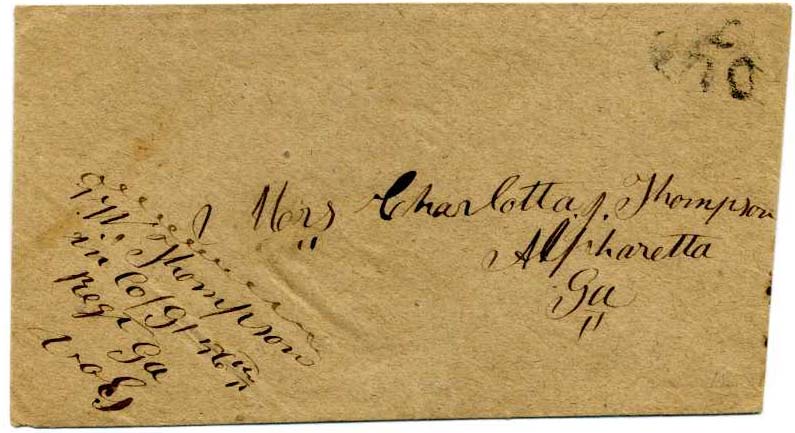 10
Mrs Charlotta. J. Thompson
Alpharetta
Ga
T. W. Thompson
in Co /G/
Regt Ga
Vol